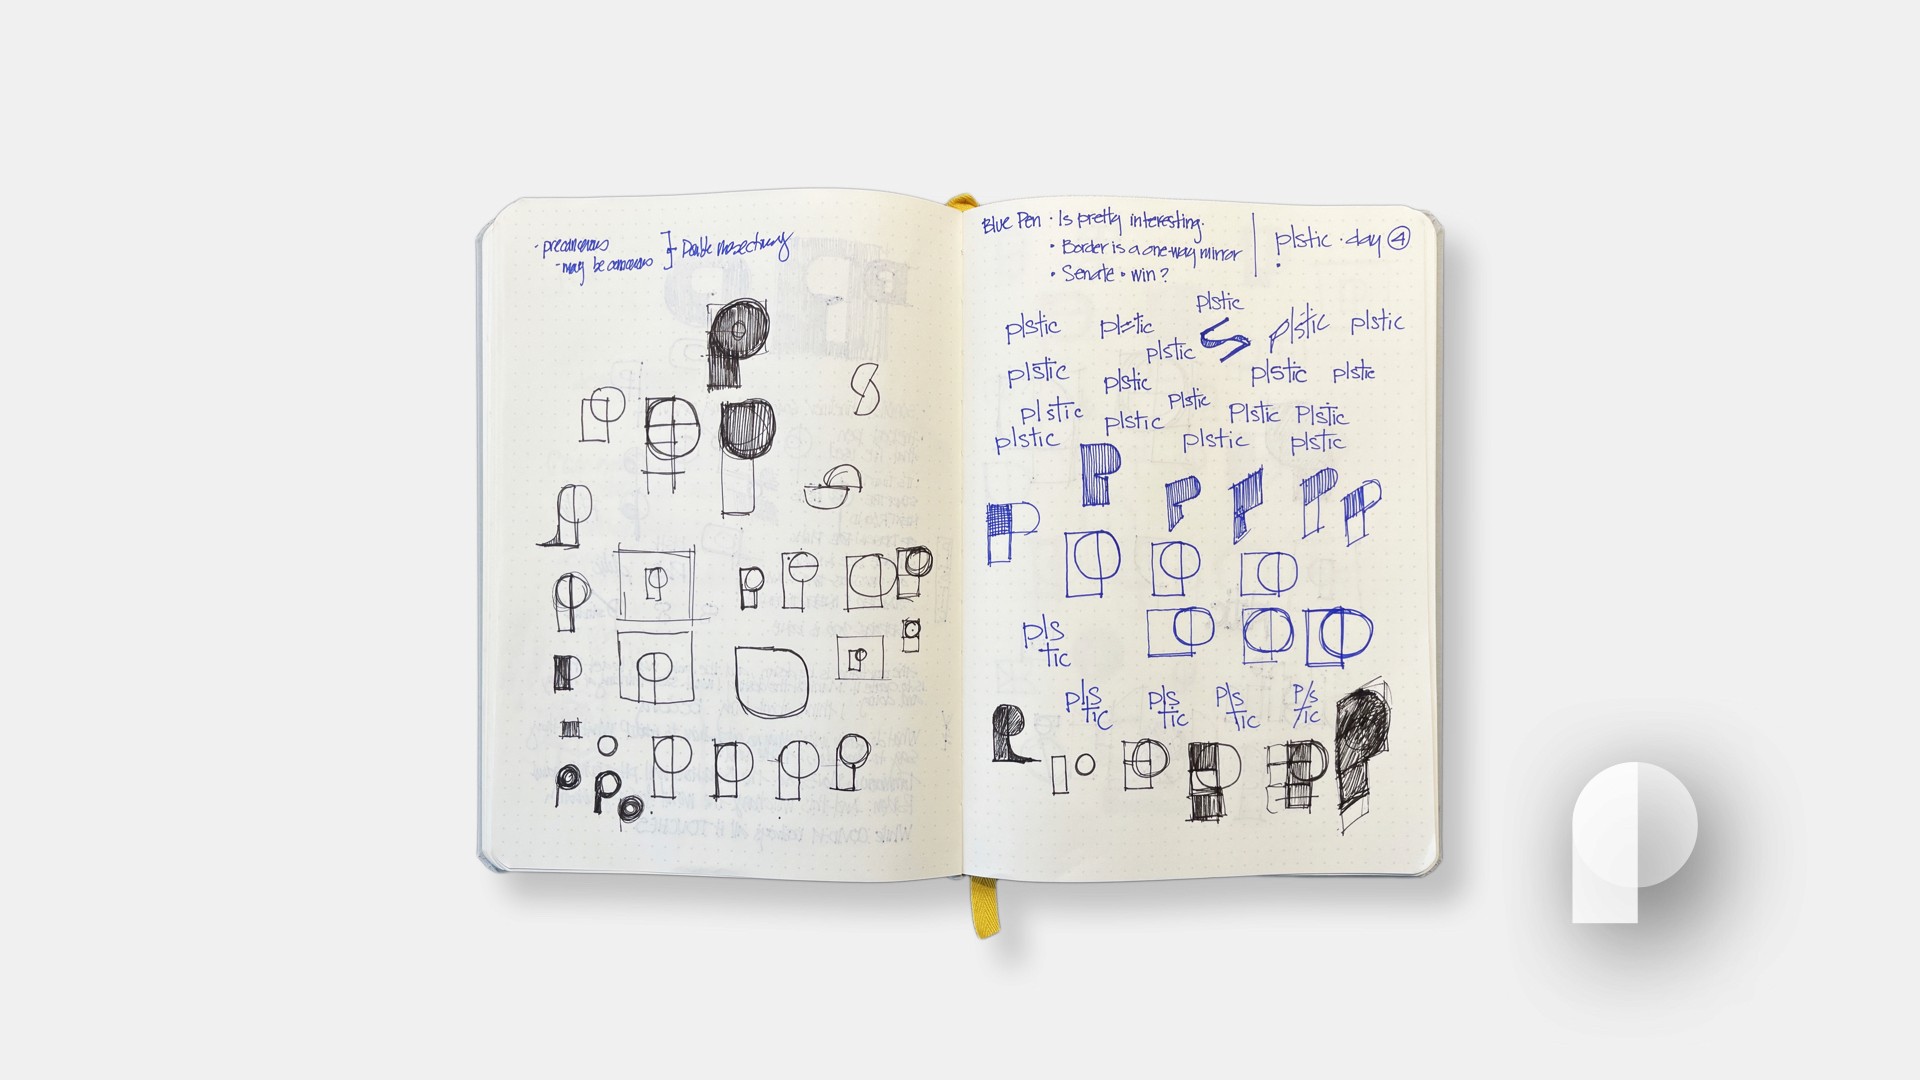 · precancerous
- may be cancerous ] - Double masectomy
Blue Pen · Is pretty interesting.
• Border is a one-way mirror
• Senate • win?
plstic · day ④
plstic
plstic plstic plstic plstic
plstic
plstic plstic plstic plstic
plstic plstic plstic plstic plstic
plstic plstic plstic
pls
tic
pls pls pls p/s
tic tic tic tic